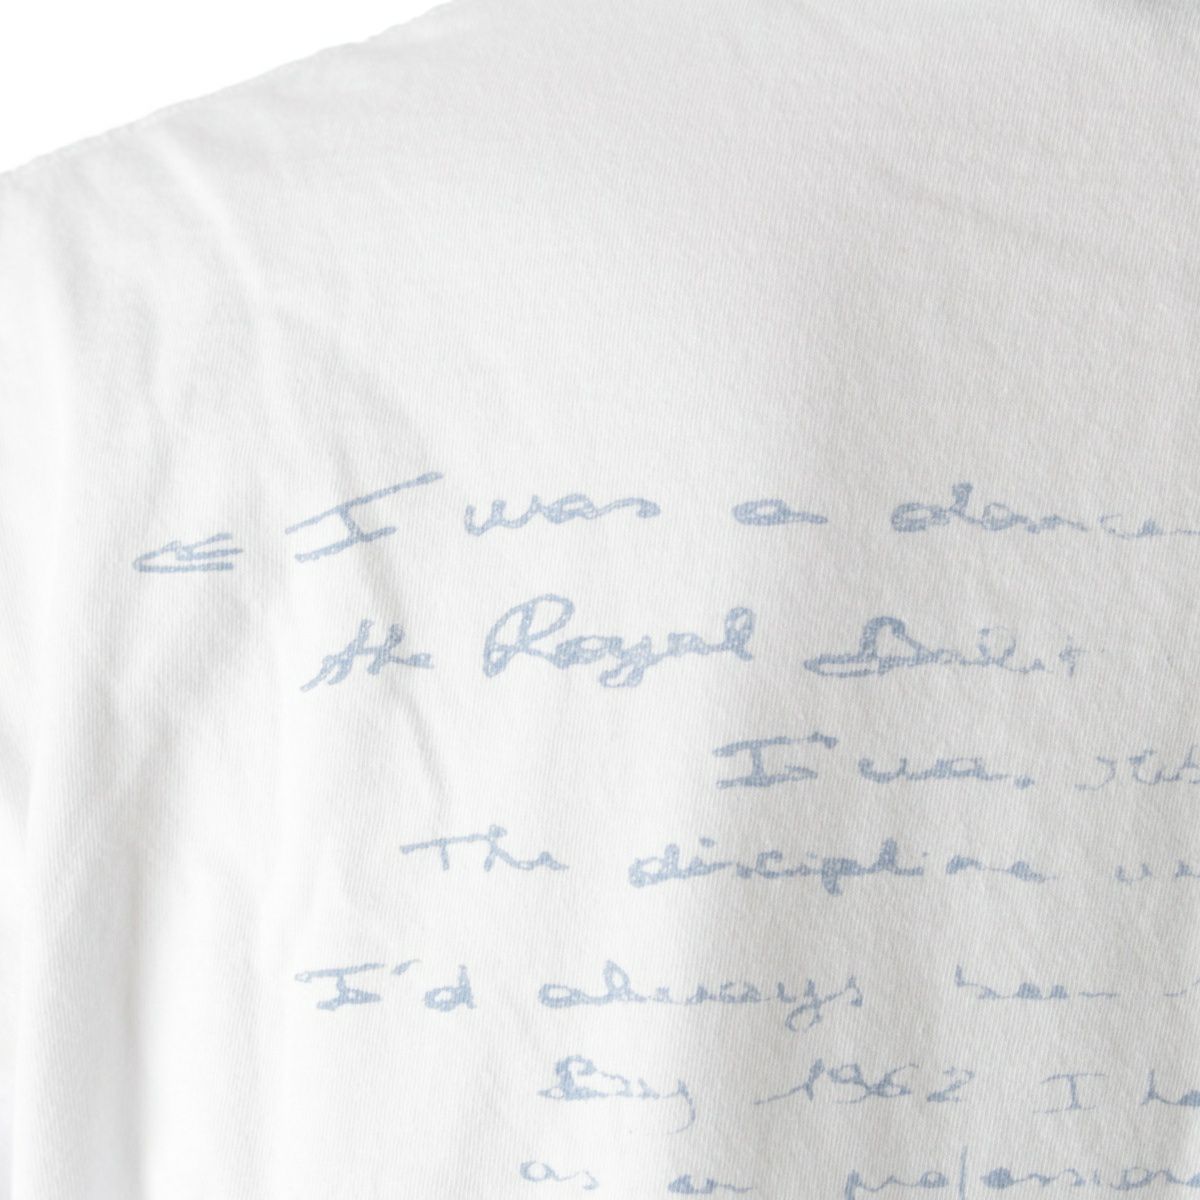 " I was a dance
the Royal Ballet
I
The discipline
I'd always been
By 1962 I
as a profession